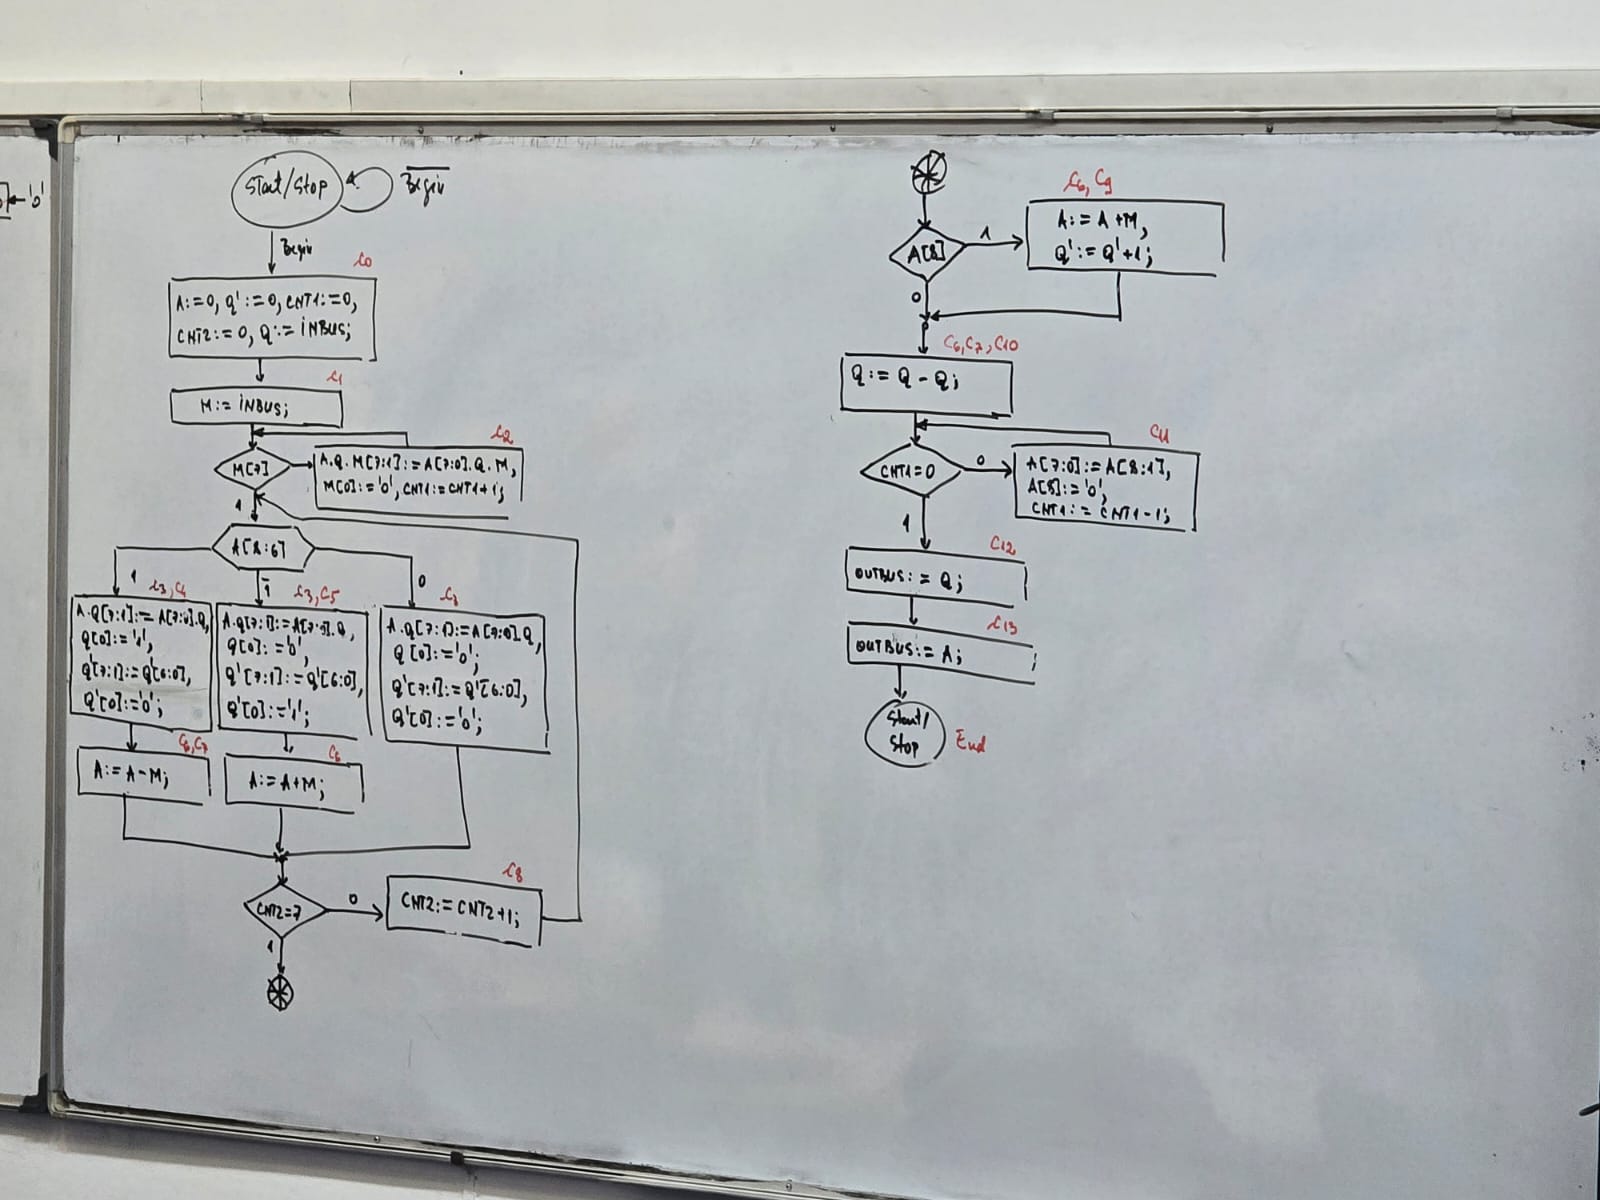 ←'0'
Start/Stop
Begin
Begin
C0
A:=0, Q':=0, CNT1:=0,
CNT2:=0, Q:=INBUS;
C1
M:= INBUS;
C2
M[7]
A.Q.M[7:1]:=A[7:0].Q.M,
M[0]:='0', CNT1:=CNT1+1;
1
A[8:6]
1
1̄
0
C3, C4
A.Q[7:1]:=A[7:0].Q,
Q[0]:='1',
Q'[7:1]:=Q'[6:0],
Q'[0]:='0';
C3, C5
A.Q[7:1]:=A[7:0].Q,
Q[0]:='0',
Q'[7:1]:=Q'[6:0],
Q'[0]:='1';
C3
A.Q[7:1]:=A[7:0].Q,
Q[0]:='0';
Q'[7:1]:=Q'[6:0],
Q'[0]:='0';
C6, C7
A:=A-M;
C6
A:=A+M;
CNT2=7
0
C8
CNT2:=CNT2+1;
1
A[8]
1
C6, C9
A:= A+M,
Q':= Q'+1;
0
C6, C7, C10
Q:= Q - Q;
CNT1=0
0
C11
A[7:0]:=A[8:1],
A[8]:='0',
CNT1:= CNT1-1;
1
C12
OUTBUS:= Q;
C13
OUTBUS:= A;
Start/
Stop
End